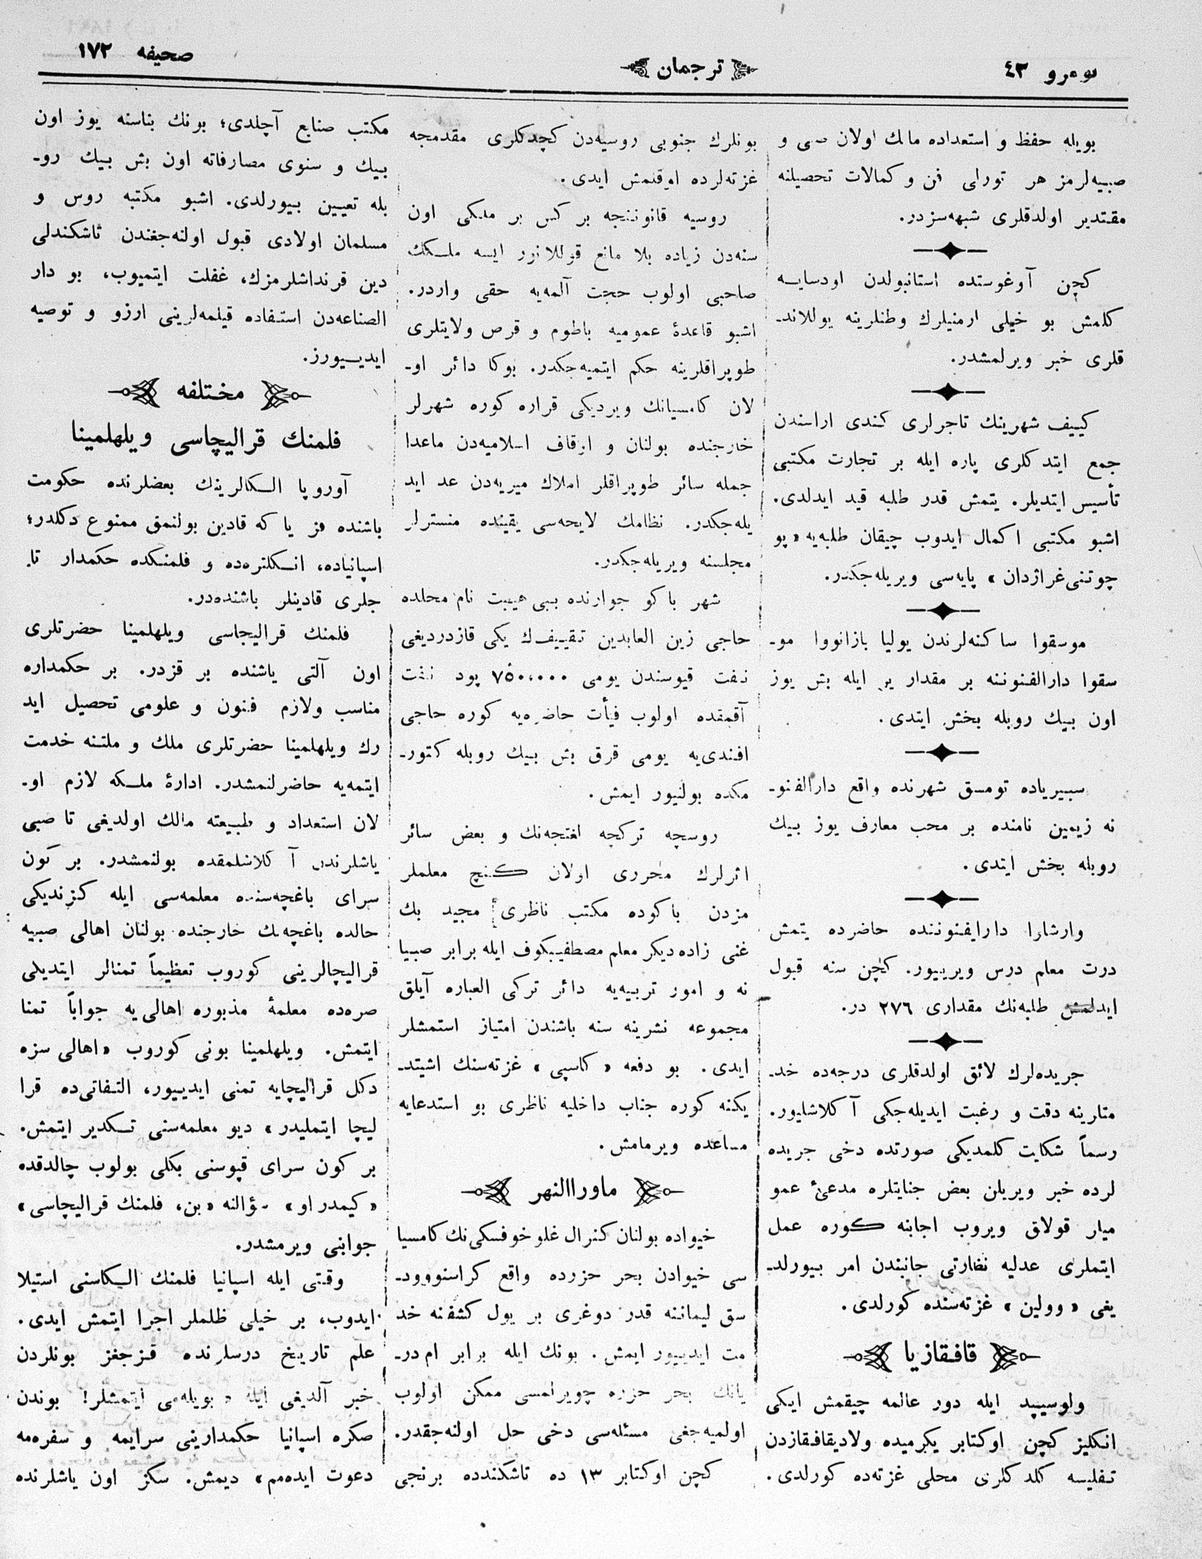 نومرو ٤٣
ترجمان
صحيفه ١٧٢
بويله حفظ و استعداده مالك اولان صبى و
صبيه‌لرمز هر تورلى فن و كمالات تحصيلنه
مقتدير اولدقلرى شبهه‌سزدر.
كچن آوغوستده استانبولدن اودسايه
كلمش بو خيلى ارمنيلرك وطنلرينه يوللاند-
قلرى خبر ويرلمشدر.
كييف شهرينك تاجرلرى كندى اراسندن
جمع ايتدكلرى پاره ايله بر تجارت مكتبى
تأسيس ايتديلر. يتمش قدر طلبه قيد ايدلدى.
اشبو مكتبى اكمال ايدوب چيقان طلبه‌يه «پو
چوتنى غراژدان» پايه‌سى ويريله‌جكدر.
موسقوا ساكنه‌لرندن يوليا بازانووا مو-
سقوا دارالفنوننه بر مقدار ير ايله بش يوز
اون بيك روبله بخش ايتدى.
سيبرياده تومسق شهرنده واقع دارالفنو-
نه زيمين نامنده بر محب معارف يوز بيك
روبله بخش ايتدى.
وارشاوا دارايفنوننده حاضرده يتمش
درت معلم درس ويريیور. كچن سنه قبول
ايدلمش طلبه‌نك مقدارى ٢٧٦ در.
جريده‌لرك لائق اولدقلرى درجه‌ده خد-
متارينه دقت و رغبت ايديله‌جكى آكلاشليور.
رسماً شكايت كلمديكى صورتده دخى جريده
لرده خبر ويريلن بعض جنايتلره مدعئ عمو
ميار قولاق ويروب اجابنه كوره عمل
ايتملرى عدليه نظارتى جانبندن امر بيورلد-
يغى «وولين» غزته‌سنده كورلدى.
قافقازيا
ولوسيپد ايله دور عالمه چيقمش ايكى
انكليز كچن اوكتابر يكرميده ولاديقافقازدن
تفليسه كلدكلرى محلى غزته‌ده كورلدى.
بونلرك جنوبى روسيه‌دن كچدكلرى مقدمجه
غزته‌لرده اوقلمش ايدى.
روسيه قانوننجه بر كس بر ملكى اون
سنه‌دن زياده بلا مانع قوللانور ايسه ملكك
صاحبى اولوب حجت آلمه‌يه حقى واردر.
اشبو قاعدهٔ عموميه باطوم و قرص ولايتلرى
طوپراقلرينه حكم ايتميه‌جكدر. بوكا دائر او-
لان كامسيانك ويرديكى قراره كوره شهرلر
خارجنده بولنان و اوقاف اسلاميه‌دن ماعدا
جمله سائر طوپراقلر املاك ميريه‌دن عد ايد
يله‌جكدر. نظامك لايحه‌سى يقينده منسترلر
مجلسنه ويريله‌جكدر.
شهر باكو جوارنده بيبى هيبت نام محلده
حاجى زين العابدين تقييفك يكى قازدرديغى
نفت قيوسندن يومى ٧٥٠،٠٠٠ پود نفت
آقمقده اولوب فيأت حاضره‌يه كوره حاجى
افندى‌يه يومى قرق بش بيك روبله كتور-
مكده بولنيور ايمش.
روسچه تركچه لغتچه‌نك و بعض سائر
اثرلرك محررى اولان كنچ معلملر
مزدن باكوده مكتب ناظرى مجيد بك
غنى زاده ديكر معلم مصطفيبكوف ايله برابر صبيا
نه و امور تربيه‌يه دائر تركى العباره آيلق
مجموعه نشرينه سنه باشندن امتياز استمشلر
ايدى. بو دفعه «كاسپى» غزته‌سنك اشيتد-
يكنه كوره جناب داخليه ناظرى بو استدعايه
مساعده ويرمامش.
ماوراالنهر
خيواده بولنان كنرال غلوخوفسكى‌نك كامسيا
سى خيوادن بحر حزرده واقع كراسنوود-
سق ليماننه قدر دوغرى بر يول كشفنه خد
مت ايدييور ايمش. بونك ايله برابر ام در-
يانك بحر حزره چويرلمسى ممكن اولوب
اولميه‌جغى مسئله‌سى دخى حل اولنه‌جقدر.
كچن اوكتابر ١٣ ده تاشكندده برنجى
مكتب صنايع آچلدى؛ بونك بناسنه يوز اون
بيك و سنوى مصارفاته اون بش بيك رو-
بله تعيين بيورلدى. اشبو مكتبه روس و
مسلمان اولادى قبول اولنه‌جغندن تاشكندلى
دين قرنداشلرمزك، غفلت ايتميوب، بو دار
الصناعه‌دن استفاده قيلمه‌لرينى ارزو و توصيه
ايدييورز.
مختلفه
فلمنك قراليچاسى ويلهلمينا
آوروپا الكالرينك بعضلرنده حكومت
باشنده قز يا كه قادين بولنمق ممنوع دكلدر؛
اسپانياده، انكلتره‌ده و فلمنكده حكمدار تا-
جلرى قادينلر باشنده‌در.
فلمنك قراليجاسى ويلهلمينا حضرتلرى
اون آلتى ياشنده بر قزدر. بر حكمداره
مناسب ولازم فنون و علومى تحصيل ايد
رك ويلهلمينا حضرتلرى ملك و ملتنه خدمت
ايتمه‌يه حاضرلنمشدر. ادارهٔ ملكه لازم او-
لان استعداد و طبيعته مالك اولديغى تا صبى
ياشلرندن آكلاشلمقده بولنمشدر. بر كون
سراى باغچه‌سنده معلمه‌سى ايله كزنديكى
حالده باغچه‌نك خارجنده بولنان اهالى صبيه
قراليچالرينى كوروب تعظيماً تمنالر ايتديلى
صره‌ده معلمهٔ مذبوره اهالى‌يه جواباً تمنا
ايتمش. ويلهلمينا بونى كوروب «اهالى سزه
دكل قراليچايه تمنى ايدييور، التفاتى‌ده قرا
ليچا ايتمليدر» ديو معلمه‌سنى تكدير ايتمش.
بر كون سراى قپوسنى بكلى بولوب چالدقده
«كيمدر او» سؤالنه «بن، فلمنك قراليچاسى»
جوابنى ويرمشدر.
وقتى ايله اسپانيا فلمنك الكاسنى استيلا
ايدوب، بر خيلى ظلملر اجرا ايتمش ايدى.
علم تاريخ درسلرنده قزجغز بونلردن
خبر آلديغى ايله «بويله‌مى ايتمشلر! بوندن
صكره اسپانيا حكمدارينى سرايمه و سفره‌مه
دعوت ايده‌مم» ديمش. سكز اون ياشلرنده